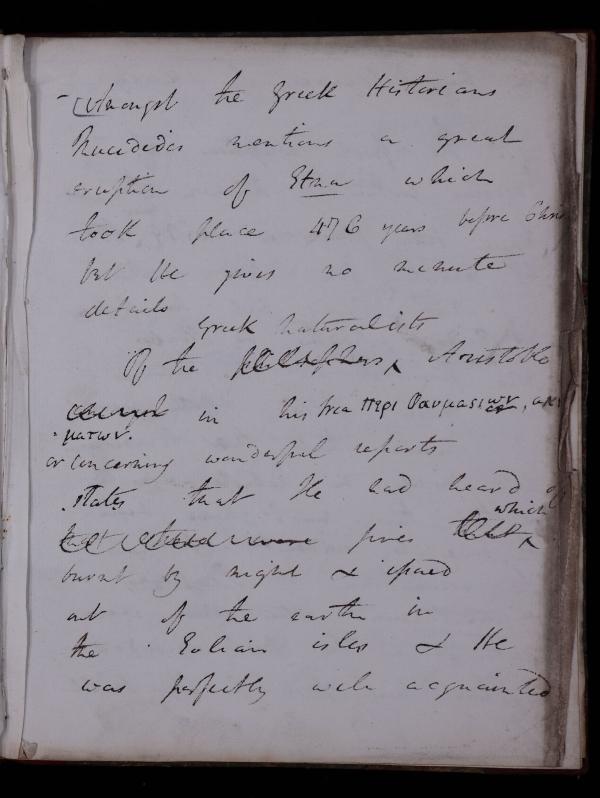 - Amongst the Greek Historians
Thucidides mentions a great
eruption of Etna which
took place 476 years before Chris
but He gives no minute
details
Greek naturalists
Of the philosophers ^ Aristotle
in his trea Περι Θαυμασιων, ακ
-ματων.
or concerning wonderful reports
states that He had heard of
which
fires that ^
burnt by night & issued
out of the earth in
the Eolian isles & He
was perfectly well acquainted